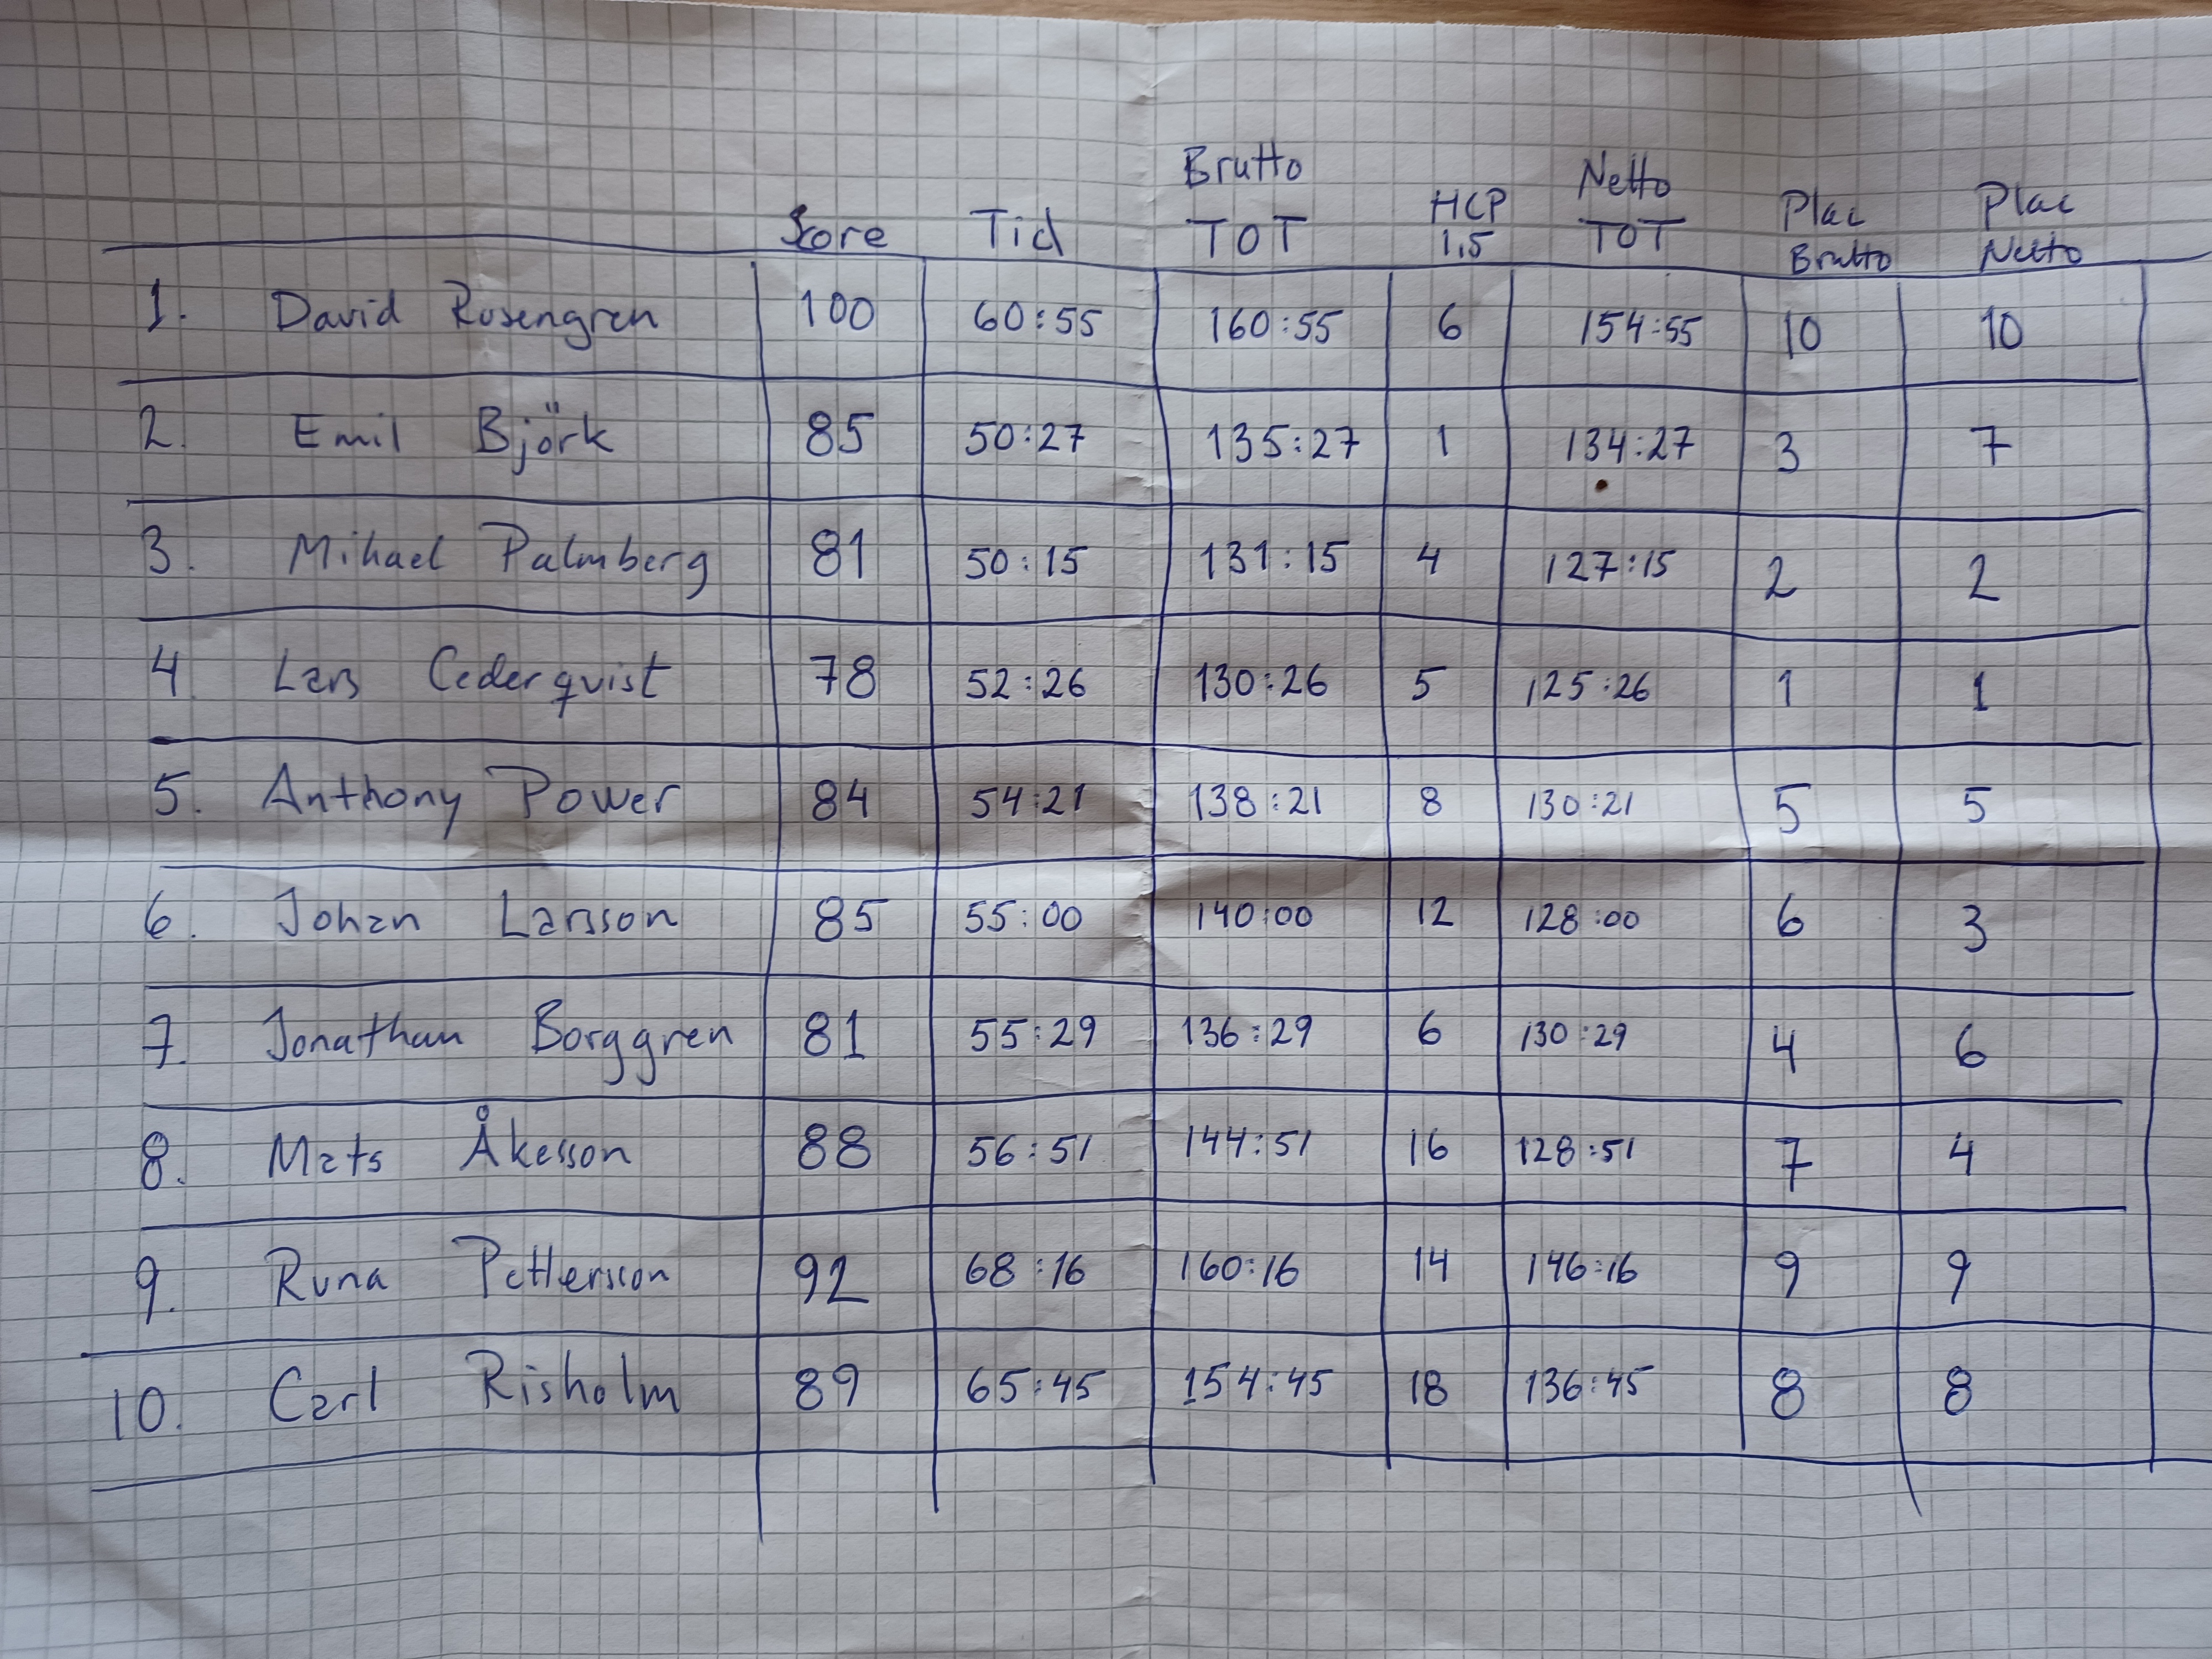 Score Tid Brutto TOT HCP 1,5 Netto TOT Plac Brutto Plac Netto
1. David Rosengren 100 60:55 160:55 6 154:55 10 10
2. Emil Björk 85 50:27 135:27 1 134:27 3 7
3. Mihael Palmberg 81 50:15 131:15 4 127:15 2 2
4. Lars Cederquist 78 52:26 130:26 5 125:26 1 1
5. Anthony Power 84 54:21 138:21 8 130:21 5 5
6. Johan Larsson 85 55:00 140:00 12 128:00 6 3
7. Jonathan Borggren 81 55:29 136:29 6 130:29 4 6
8. Mats Åkesson 88 56:51 144:51 16 128:51 7 4
9. Runa Pettersson 92 68:16 160:16 14 146:16 9 9
10. Carl Risholm 89 65:45 154:45 18 136:45 8 8